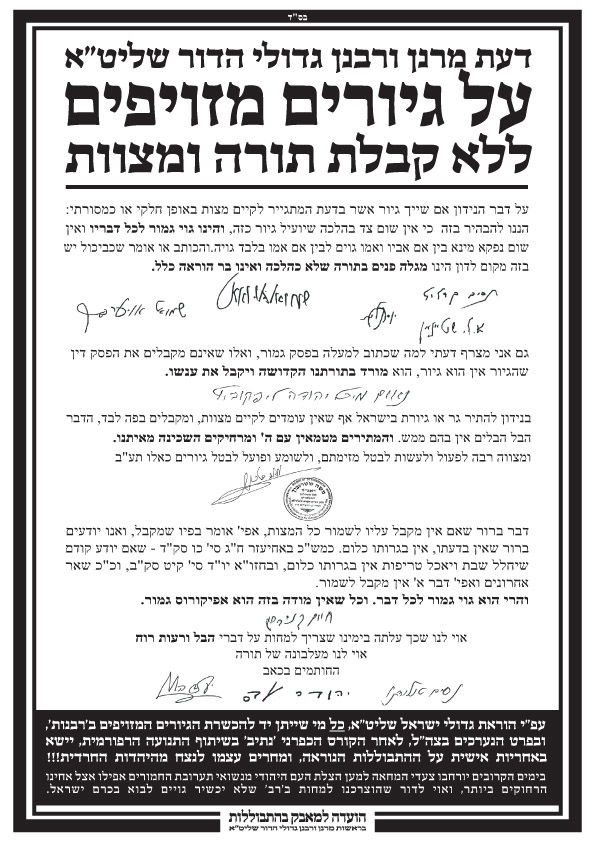 בס"ד
דעת מרנן ורבנן גדולי הדור שליט"א
על גיורים מזויפים
ללא קבלת תורה ומצוות
על דבר הנידון אם שייך גיור אשר בדעת המתגייר לקיים מצות באופן חלקי או כמסורתי:
הננו להבהיר בזה  כי אין שום צד בהלכה שיועיל גיור כזה, והינו גוי גמור לכל דבריו ואין
שום נפקא מינא בין אם אביו ואמו גוים לבין אם אמו בלבד גויה.והכותב או אומר שכביכול יש
בזה מקום לדון הינו מגלה פנים בתורה שלא כהלכה ואינו בר הוראה כלל.
נסים קרליץ
א.ל. שטיינמן
שמואל אויערבך
גם אני מצרף דעתי למה שכתוב למעלה בפסק גמור, ואלו שאינם מקבלים את הפסק דין
שהגיור אין הוא גיור, הוא מורד בתורתנו הקדושה ויקבל את ענשו.
נאום מיכל יהודה ליפקוביץ
בנידון להתיר גר או גיורת בישראל אף שאין עומדים לקיים מצוות, ומקבלים בפה לבד, הדבר
הבל הבלים אין בהם ממש. והמתירים מטמאין עם ה' ומרחיקים השכינה מאיתנו.
ומצווה רבה לפעול ולעשות לבטל מזימתם, ולשומע ופועל לבטל גיורים כאלו תע"ב
דבר ברור שאם אין מקבל עליו לשמור כל המצות, אפי' אומר בפיו שמקבל, ואנו יודעים
ברור שאין בדעתו, אין בגרותו כלום. כמש"כ באחיעזר ח"ג סי' כו סק"ד - שאם יודע קודם
שיחלל שבת ויאכל טריפות אין בגרותו כלום, ובחזו"א יו"ד סי' קיט סק"ב, וכ"כ שאר
אחרונים ואפי' דבר א' אין מקבל לשמור.
והרי הוא גוי גמור לכל דבר. וכל שאין מודה בזה הוא אפיקורוס גמור.
חיים קניבסקי
אוי לנו שכך עלתה בימינו שצריך למחות על דברי הבל ורעות רוח
אוי לנו מעלבונה של תורה
החותמים בכאב
נסים טולידנו
יהודה עדס
עפ"י הוראת גדולי ישראל שליט"א, כל מי שייתן יד להכשרת הגיורים המזויפים ב'רבנות',
ובפרט הנערכים בצה"ל, לאחר הקורס הכפרני 'נתיב' בשיתוף התנועה הרפורמית, יישא
באחריות אישית על ההתבוללות הנוראה, ומחרים עצמו לנצח מהיהדות החרדית!!!
בימים הקרובים יורחבו צעדי המחאה למען הצלת העם היהודי מנשואי תערובת החמורים אפילו אצל אחינו
הרחוקים ביותר, ואוי לדור שהוצרכנו למחות ב'רב' שלא יכשיר גויים לבוא בכרם ישראל.
הועדה למאבק בהתבוללות
בראשות מרנן ורבנן גדולי הדור שליט"א